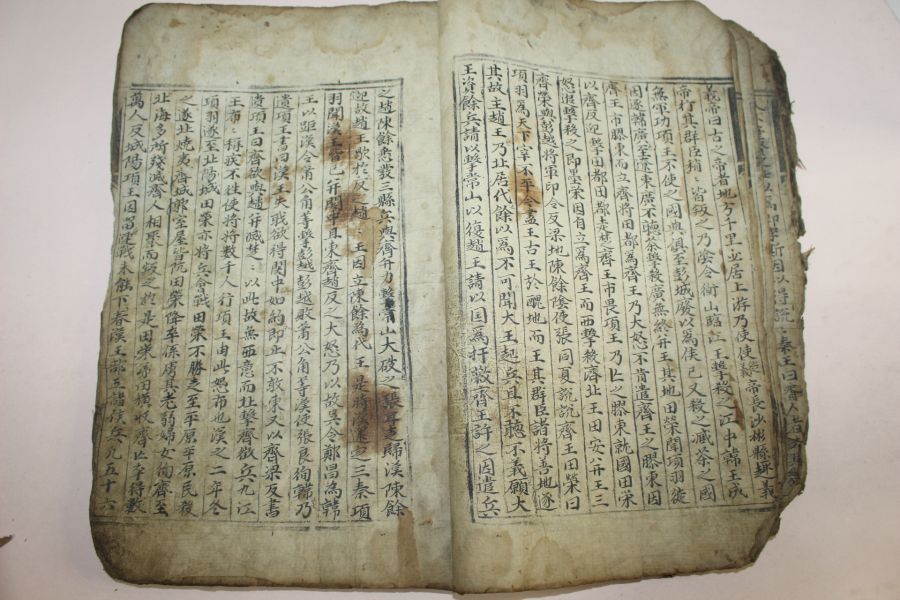 義帝曰古之帝者地方千里必居上游乃使使徙義帝長沙郴縣趍義
帝行其群臣稍〻皆叛之乃陰令衡山臨江王擊殺之江中韓王成
無軍功項王不使之國與俱至彭城廢以爲侯已又殺之臧荼之國
因逐韓廣至遼東廣不聽荼擊殺廣無終并王其地田榮聞項羽徙
齊王市膠東而立齊將田都爲齊王乃大怒不肯遣齊王之膠東因
以齊反迎擊田都田都走楚齊王市畏項王乃亡之膠東就國田榮
怒追擊殺之即墨榮因自立爲齊王而西擊殺濟北王田安并王三
齊榮與彭越將軍印令反梁地陳餘陰使張同夏說說齊王田榮曰
項羽爲天下宰不平今盡王古王於醜地而王其群臣諸將善地逐
其故主趙王乃北居代餘以爲不可聞大王起兵且不聽不義願大
王資餘兵請以擊常山以復趙王請以國爲扞蔽齊王許之因遣兵
之趙陳餘悉發三縣兵與齊并力擊常山大破之張耳走歸漢陳餘
迎故趙王歇於反之趙〻王因立陳餘爲代王是時漢還定三秦項
羽聞漢王皆已并關中且東齊趙反之大怒乃以故吳令鄭昌爲韓
王以距漢令蕭公角等擊彭越彭越敗蕭公角等漢使張良徇韓乃
遺項王書曰漢王失職欲得關中如約即止不敢東又以齊梁反書
遺項王曰齊欲與趙并滅楚〻以此故無西意而北擊齊徵兵九江
王布〻稱疾不往使將將數千人行項王由此怨布也漢之二年冬
項羽遂至北陽城田榮亦將兵會戰田榮不勝走至平原平原民殺
之遂北燒夷齊城槨室屋皆阬田榮降卒係虜其老弱婦女徇齊至
北海多所殘滅齊人相聚而叛之於是田榮弟田橫收齊亡卒得數
萬人反城陽項王因留連戰未能下春漢王部五諸侯兵凡五十六